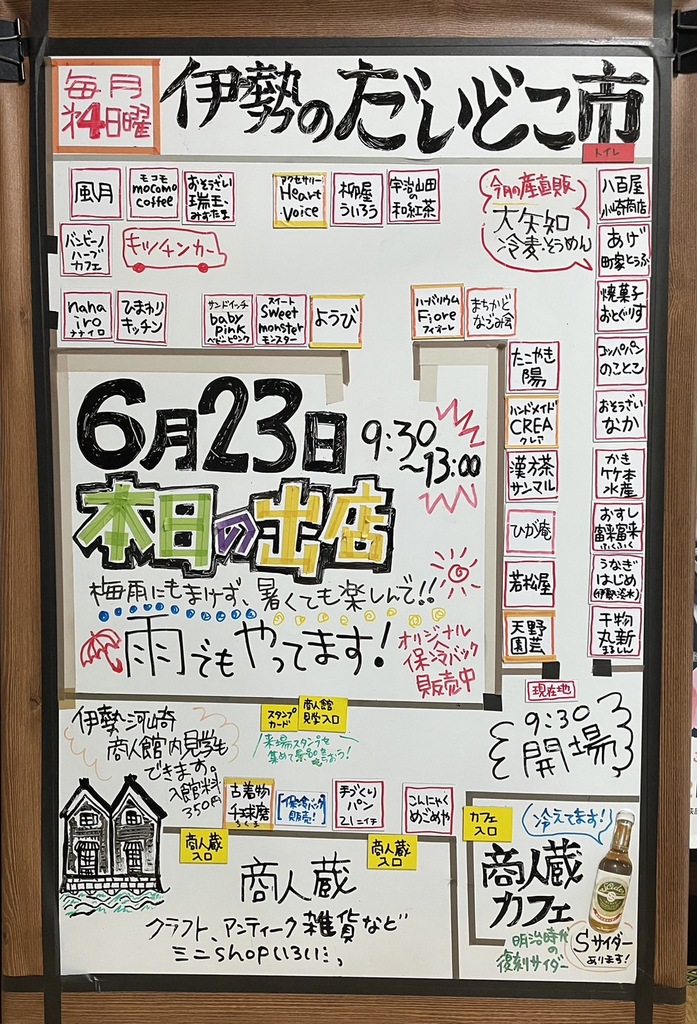 毎月
第4日曜
伊勢のだいどこ市
トイレ
風月
モコモ
mocomo
coffee
おそうざい
瑞玉
みずたま
アクセサリー
Heart
Voice
柳屋
ういろう
宇治山田
の
和紅茶
今月の産直販
大矢知
冷麦・そうめん
八百屋
小崎商店
バンビーノ
ハーブ
カフェ
キッチンカー
あげ
町家とうふ
nana
iro
ナナイロ
ひまわり
キッチン
サンドイッチ
baby
pink
ベビーピンク
スイート
sweet
monster
モンスター
ようび
ハーバリウム
Fiore
フィオーレ
まちかど
なごみ会
焼菓子
おとぐりす
たこやき
陽
コッペパン
のことこ
ハンドメイド
CREA
クレア
おそうざい
なか
漢方茶
サンマル
かき
竹本
水産
ひが庵
おすし
富来富来
ふくふく
若松屋
うなぎ
はじめ
天野
園芸
干物
丸新
まるしん
6月23日
9:30
~13:00
本日の出店
梅雨にもまけず、暑くても楽しんで!!
雨でもやってます!
オリジナル
保冷バック
販売中
現在地
9:30
開場
伊勢河崎
商人館内見学も
できます。
入館料
350円
スタンプ
カード
商人館
見学入口
来場スタンプを
集めて景品を貰おう!
古着物
千球磨
ちくま
保冷バック
販売!
手づくり
パン
こんにゃく
めごめや
カフェ
入口
冷えてます!
商人蔵
入口
商人蔵
入口
商人蔵
クラフト、アンティーク雑貨など
ミニshopいろいろ
商人蔵
カフェ
明治時代
の
復刻サイダー
Sサイダー
あります!